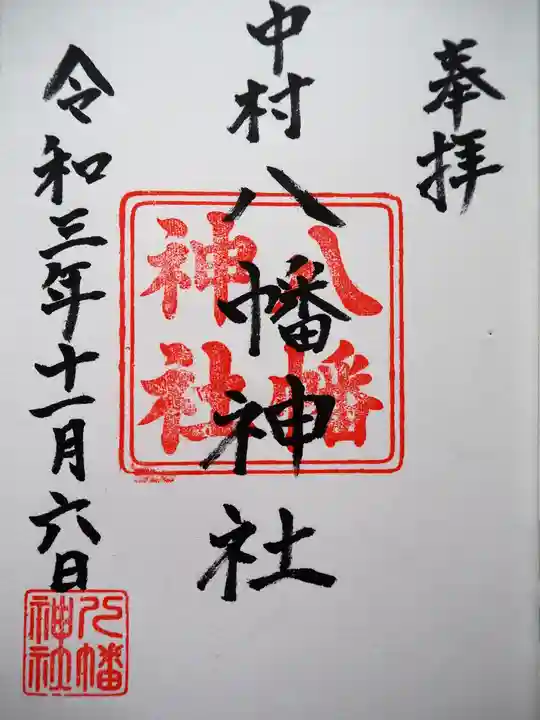 奉拝
中村八幡神社
八幡神社
令和三年十一月六日
八幡神社